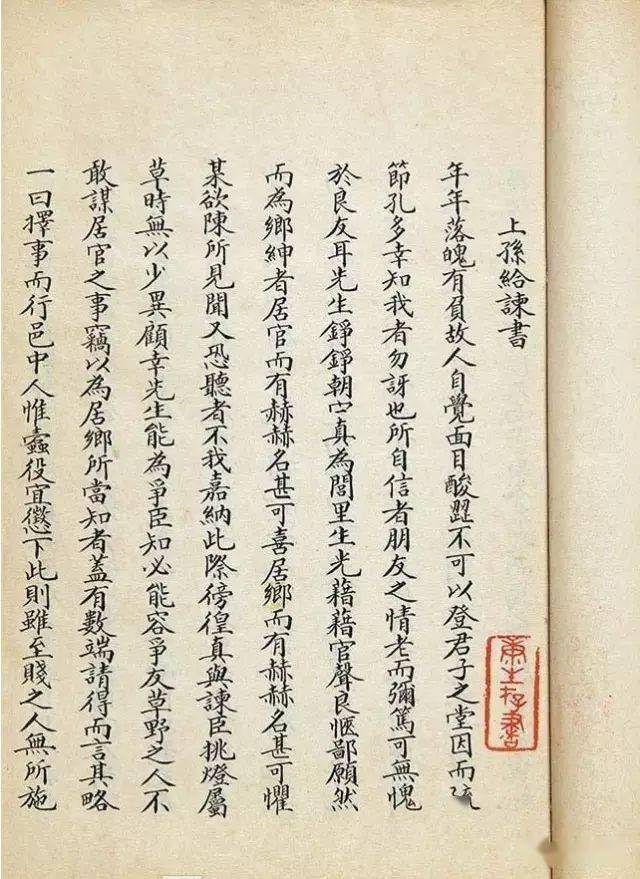 上孫給諫書
年年落魄有負故人自覺面目酸澀不可以登君子之堂因而疏
節孔多幸知我者勿訝也所自信者朋友之情老而彌篤可無愧
於良友耳先生錚錚朝宁真為閭里生光藉藉官聲良愜鄙願然
而為鄉紳者居官而有赫赫名甚可喜居鄉而有赫赫名甚可懼
某欲陳所見聞又恐聽者不我嘉納此際徬徨真與諫臣挑燈屬
草時無以少異顧幸先生能為爭臣知必能容爭友草野之人不
敢謀居官之事竊以為居鄉所當知者蓋有數端請得而言其略
一曰擇事而行邑中人惟蠹役宜懲下此則雖至賤之人無所施